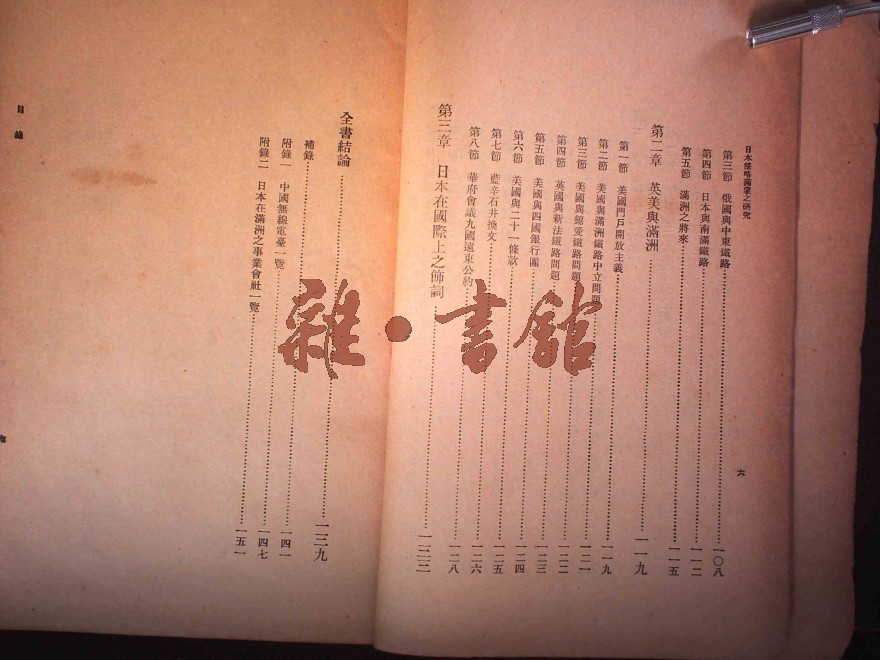 日本侵略滿蒙之研究
第三節 俄國與中東鐵路 一〇八
第四節 日本與南滿鐵路 一一二
第五節 滿洲之將來 一一五
第二章 英美與滿洲 一一九
第一節 美國門戶開放主義 一一九
第二節 美國與滿洲鐵路中立問題 一一九
第三節 美國與錦愛鐵路問題 一二一
第四節 英國與新法鐵路問題 一二二
第五節 美國與四國銀行團 一二三
第六節 美國與二十一條款 一二四
第七節 藍辛石井換文 一二五
第八節 華府會議九國遠東公約 一二六
一二八
第三章 日本在國際上之飾詞 一三三
六
目錄
全書結論 一三九
補錄
附錄一 中國無線電臺一覽 一四一
附錄二 日本在滿洲之事業會社一覽 一四七
一五一
雜·書館